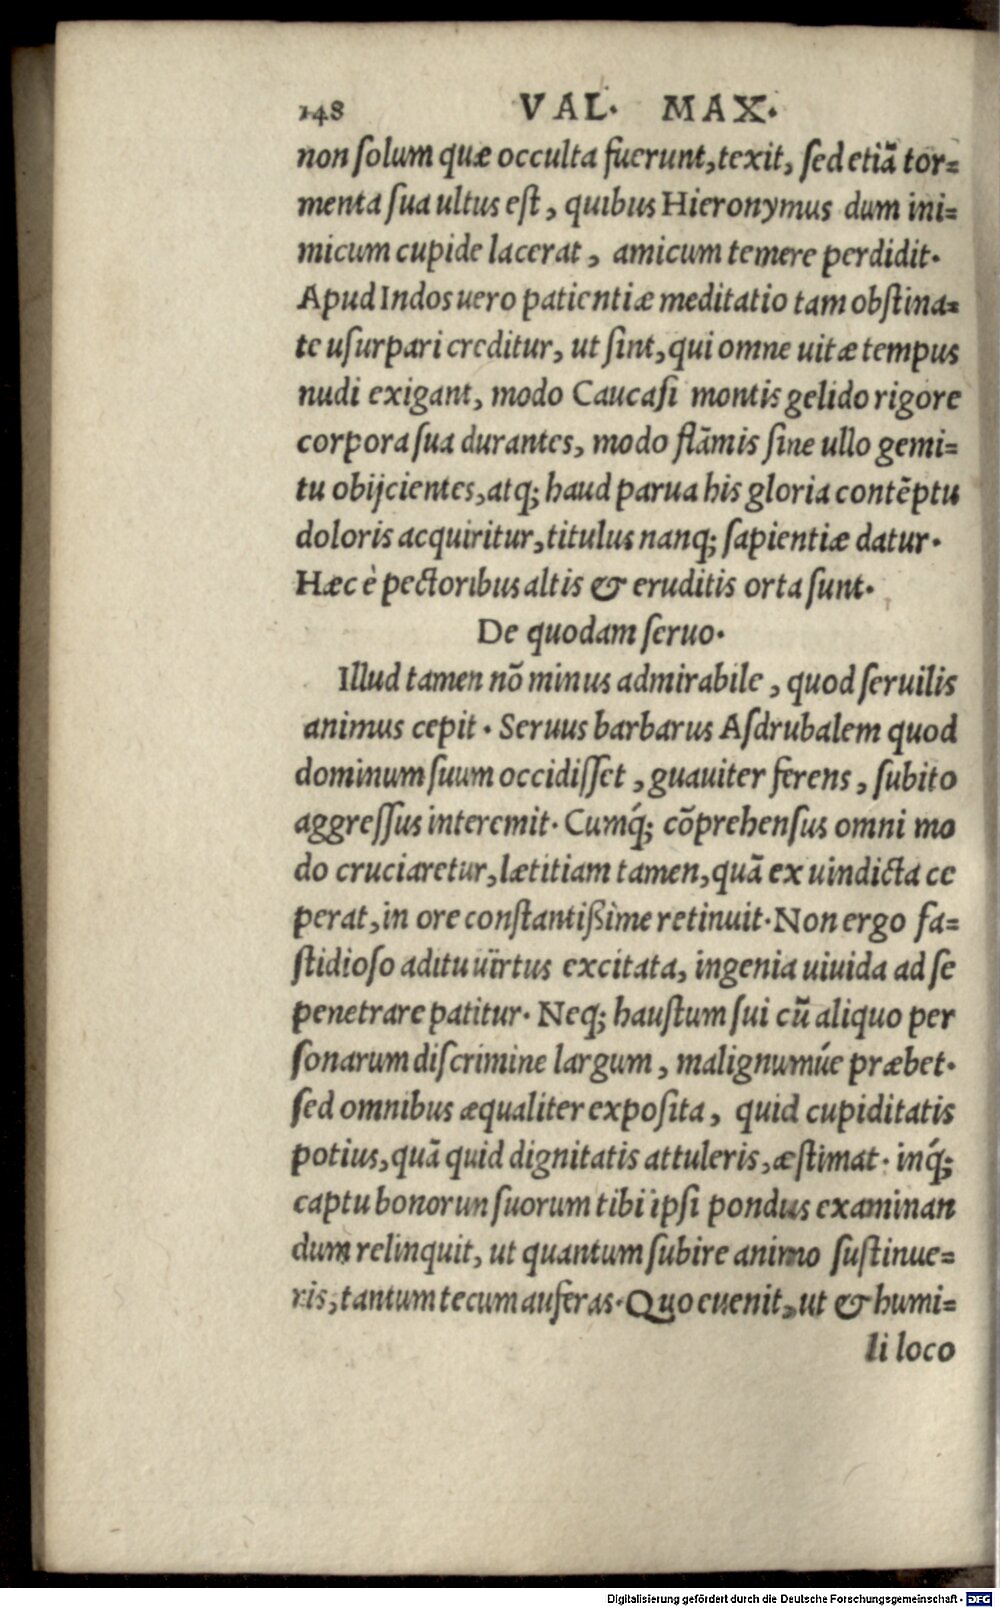 148 VAL. MAX.
non ſolum quæ occulta fuerunt, texit, ſed etiã tor=
menta ſua ultus eſt, quibus Hieronymus dum ini=
micum cupide lacerat, amicum temere perdidit.
Apud Indos uero patientiæ meditatio tam obſtina=
te uſurpari creditur, ut ſint, qui omne uitæ tempus
nudi exigant, modo Caucaſi montis gelido rigore
corpora ſua durantes, modo flãmis ſine ullo gemi=
tu obijcientes, atq; haud parua his gloria contẽptu
doloris acquiritur, titulus nanq; ſapientiæ datur.
Hæc è pectoribus altis & eruditis orta ſunt.
De quodam ſeruo.
Illud tamen nõ minus admirabile, quod ſeruilis
animus cepit. Seruus barbarus Aſdrubalem quod
dominum ſuum occidiſſet, guauiter ferens, ſubito
aggreſſus interemit. Cumq́; cõprehenſus omni mo
do cruciaretur, lætitiam tamen, quã ex uindicta ce
perat, in ore conſtantißime retinuit. Non ergo fa=
ſtidioſo aditu uirtus excitata, ingenia uiuida ad ſe
penetrare patitur. Neq; hauſtum ſui cũ aliquo per
ſonarum diſcrimine largum, malignumúe præbet.
ſed omnibus æqualiter expoſita, quid cupiditatis
potius, quã quid dignitatis attuleris, æſtimat. inq́;
captu bonorun ſuorum tibi ipſi pondus examinan
dum relinquit, ut quantum ſubire animo ſuſtinue=
ris, tantum tecum auferas. Quo euenit, ut & humi=
li loco
Digitalisierung gefördert durch die Deutsche Forschungsgemeinschaft - DFG